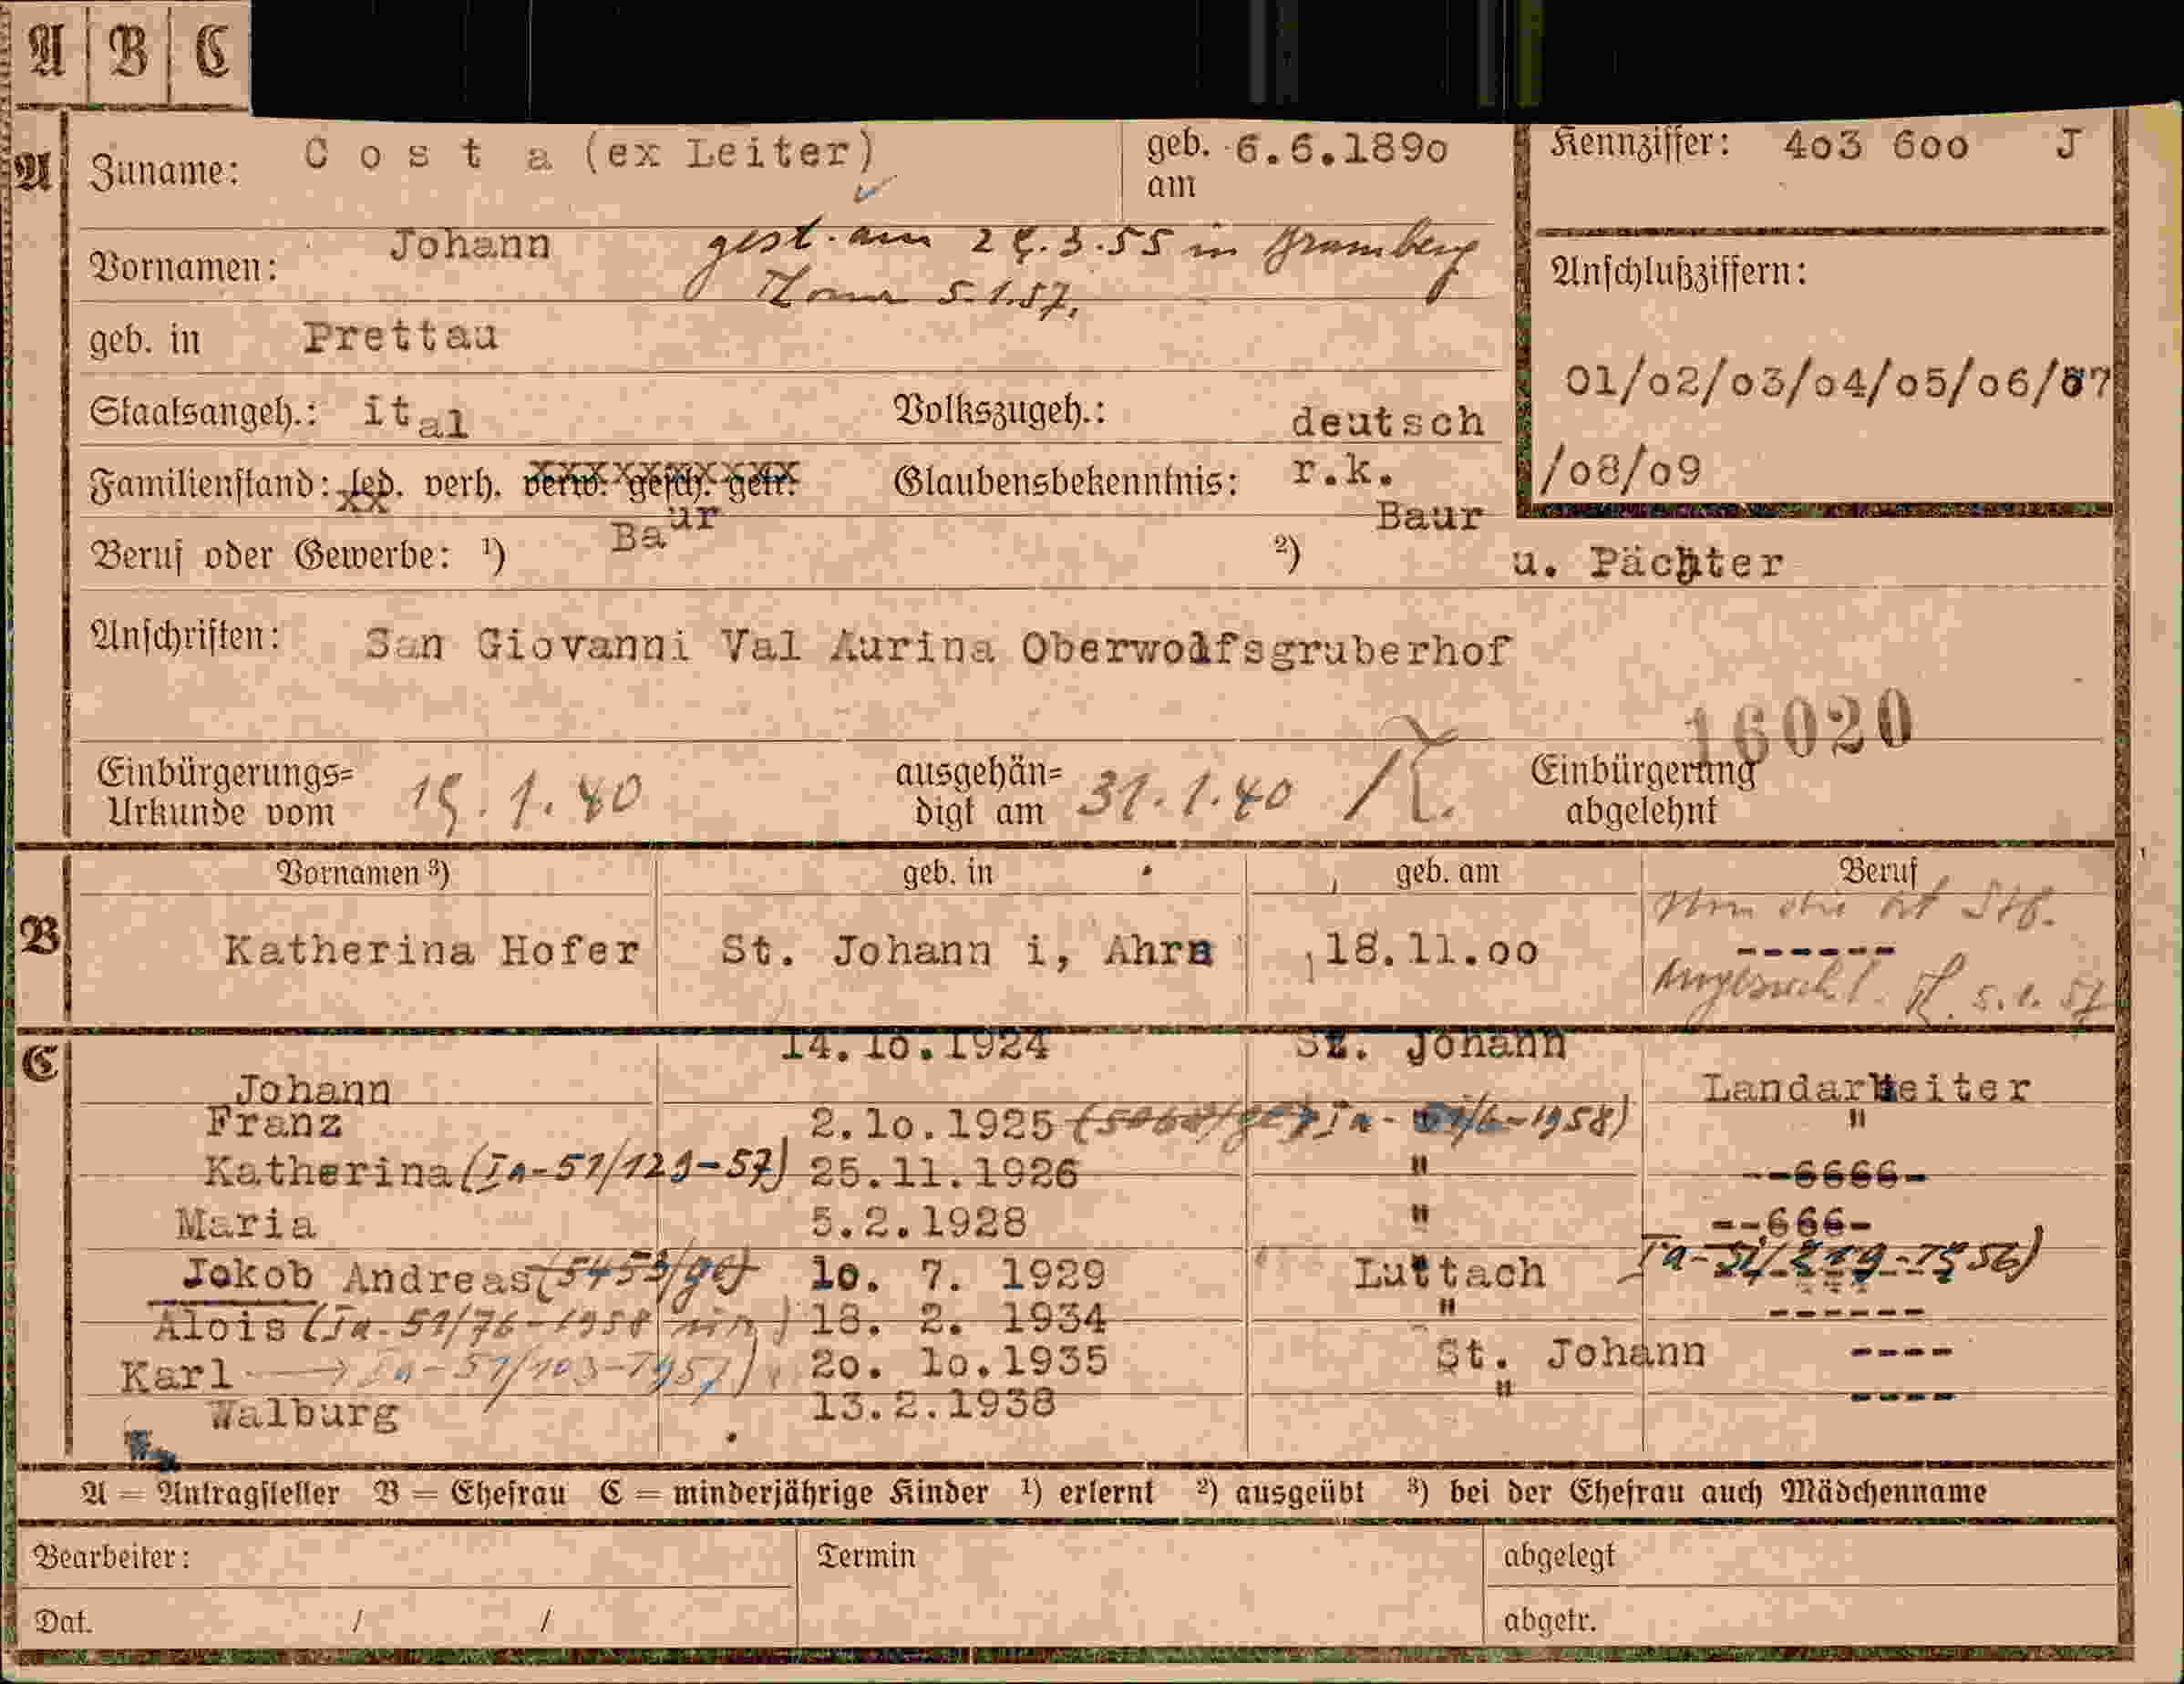 A B C
A Zuname: Costa (ex Leiter) geb. am 6.6.1890 Kennziffer: 403 600 J
Vornamen: Johann gest. am 24.3.55 in Bramberg
5.1.57.
Anschlußziffern:
geb. in Prettau
01/02/03/04/05/06/07
Staatsangeh.: ital Volkszugeh.: deutsch
/08/09
Familienstand: led. verh. verw. gesch. getr. Glaubensbekenntnis: r.k.
Beruf oder Gewerbe: 1) Baur 2) Baur u. Pächter
Anschriften: San Giovanni Val Aurina Oberwolfsgruberhof
16020
Einbürgerungs= Urkunde vom 15.1.40 ausgehän= digt am 31.1.40 Einbürgerung abgelehnt
Vornamen 3) geb. in geb. am Beruf
B Katherina Hofer St. Johann i, Ahrn 18.11.00 ------
5.1.57
C Johann 14.10.1924 St. Johann Landarbeiter
Franz 2.10.1925 -1958) " "
Katherina (Ia-51/129-57) 25.11.1926 " --6666-
Maria 5.2.1928 " --666-
Jokob Andreas (5453/ge) 10. 7. 1929 Luttach
Alois (Ia-51/76-1958 18. 2. 1934 " ------
Karl → Ia-51/103-1957) 20. 10.1935 St. Johann ----
Walburg 13.2.1938 " ----
A = Antragsteller B = Ehefrau C = minderjährige Kinder 1) erlernt 2) ausgeübt 3) bei der Ehefrau auch Mädchenname
Bearbeiter: Termin abgelegt
Dat. / / abgetr.